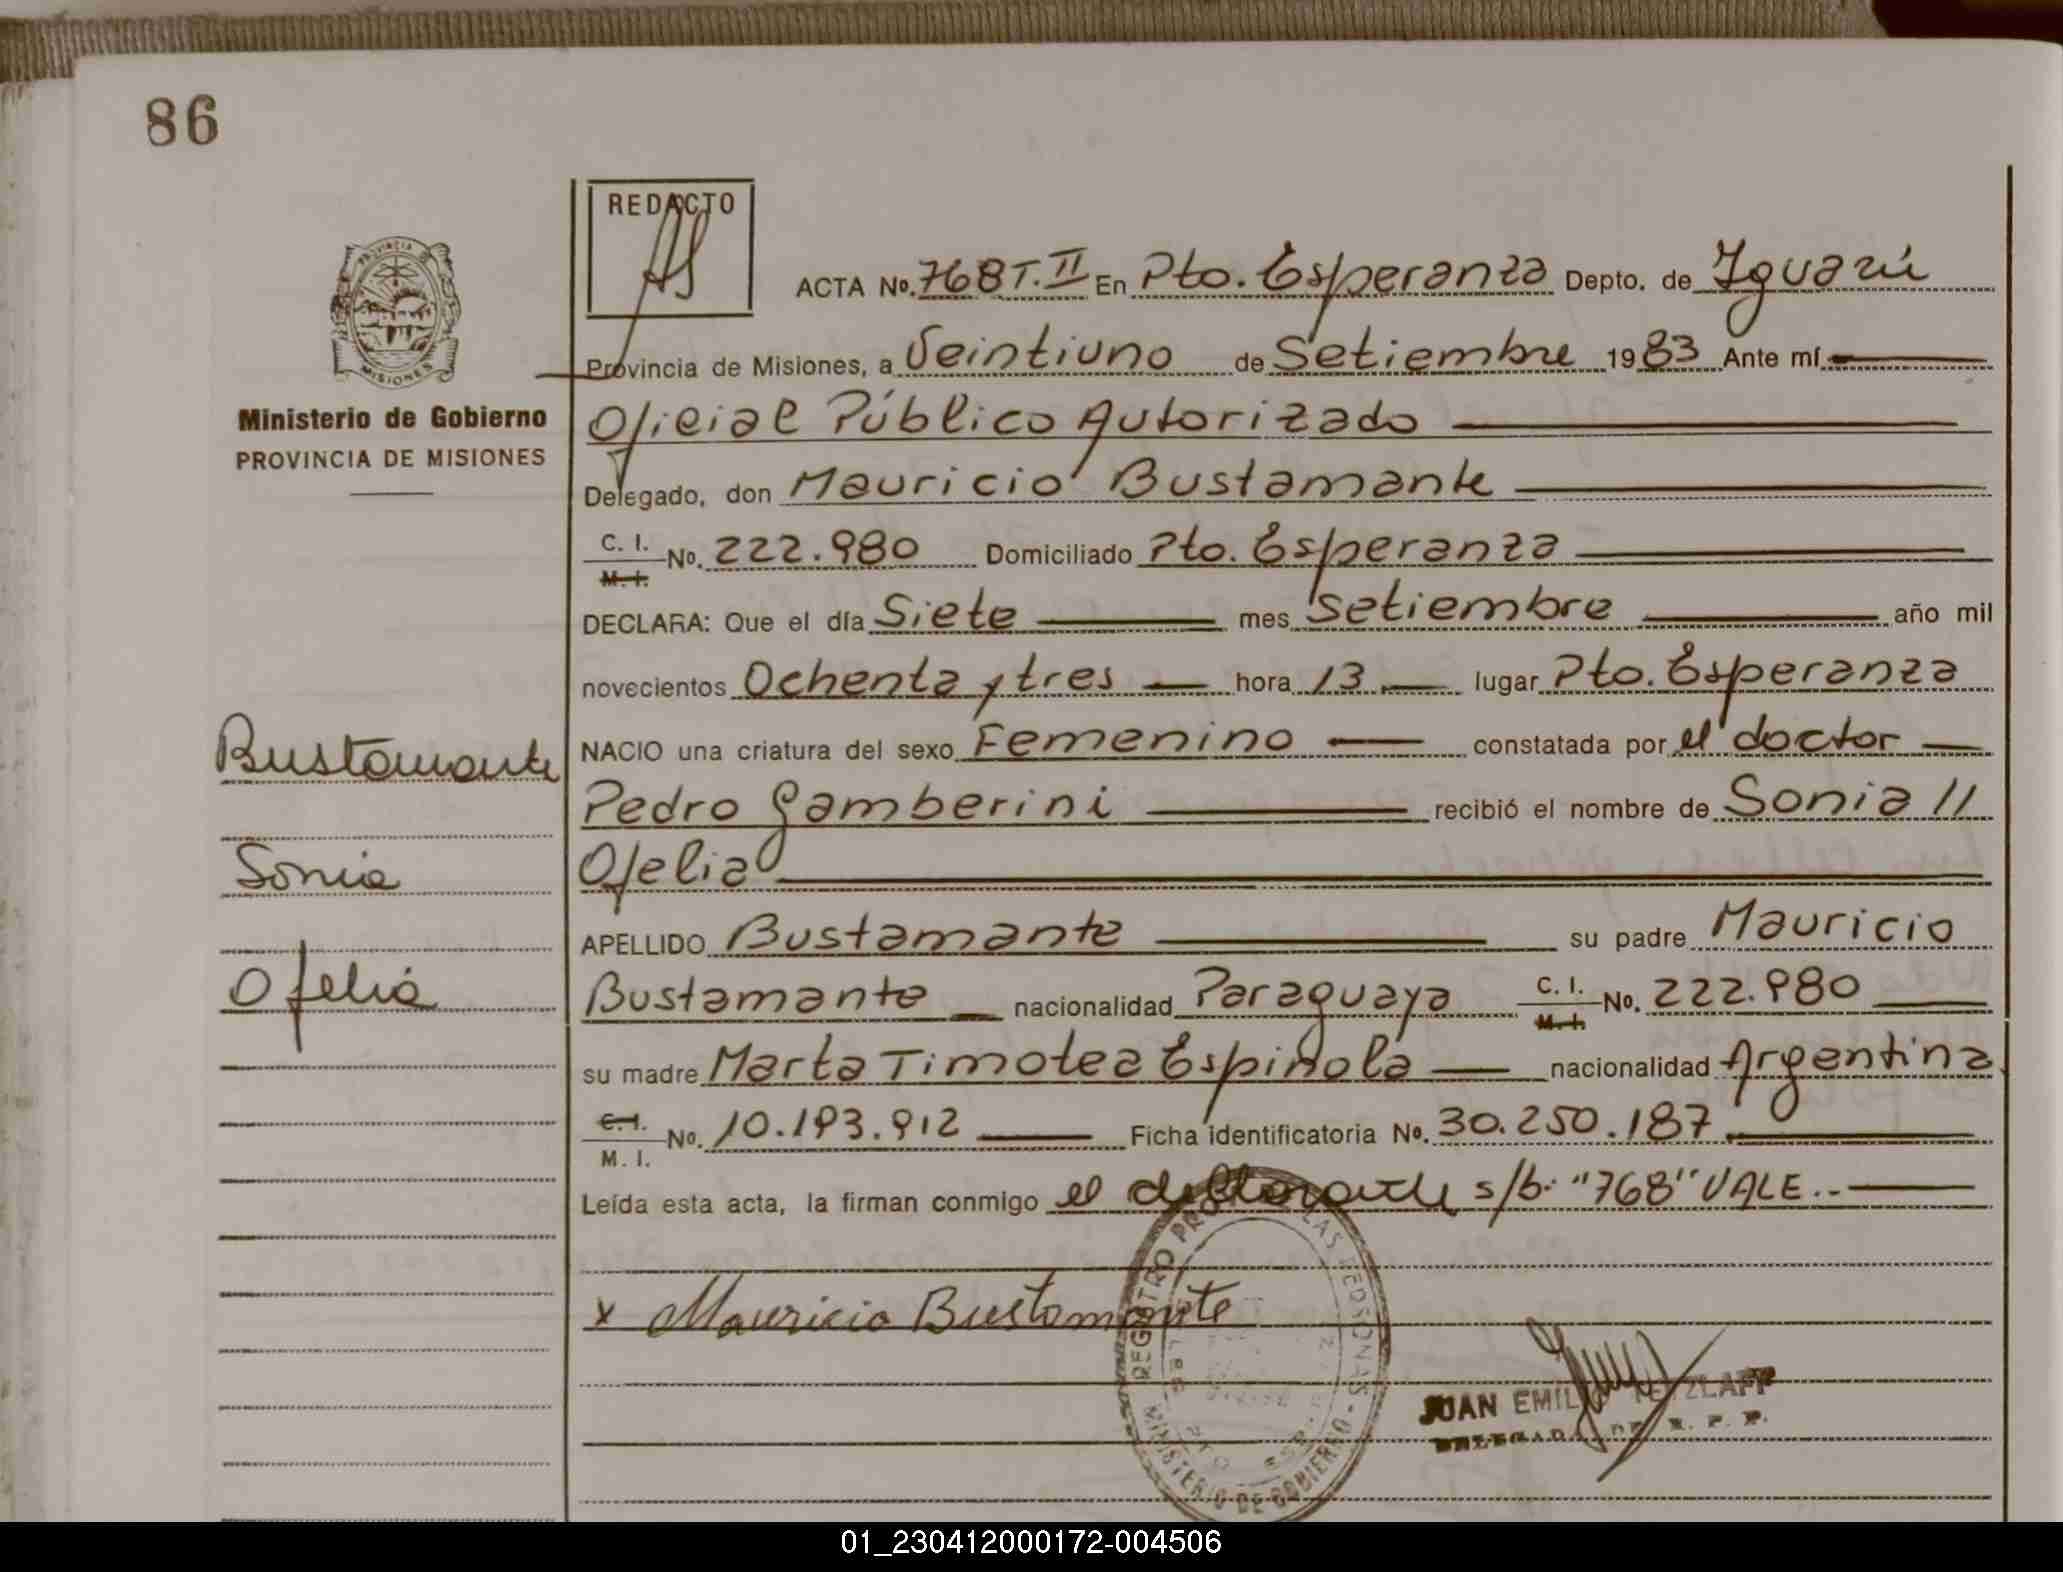 86
REDACTO
PROVINCIA DE MISIONES
ACTA Nº. 768 T. II En Pto. Esperanza Depto. de Iguazú
Provincia de Misiones, a Veintiuno de Setiembre 1983 Ante mí
Ministerio de Gobierno
PROVINCIA DE MISIONES
Oficial Público Autorizado
Delegado, don Mauricio Bustamante
C. I. M. I. Nº. 222.980 Domiciliado Pto. Esperanza
DECLARA: Que el día Siete mes Setiembre año mil
novecientos Ochenta y tres hora 13 lugar Pto. Esperanza
Bustamante
NACIO una criatura del sexo Femenino constatada por el doctor
Pedro Gamberini recibió el nombre de Sonia //
Sonia
Ofelia
APELLIDO Bustamante su padre Mauricio
Ofelia
Bustamante nacionalidad Paraguaya C. I. M. I. Nº. 222.980
su madre Marta Timotea Espinola nacionalidad Argentina
C. I. M. I. Nº. 10.193.912 Ficha identificatoria Nº. 30.250.187
Leída esta acta, la firman conmigo el s/b. "768" VALE.-
x Mauricio Bustamante
REGISTRO LAS PERSONAS - MINISTERIO DE GOBIERNO
JUAN EMILIO
DELEGADO DE R. P. P.
01_230412000172-004506